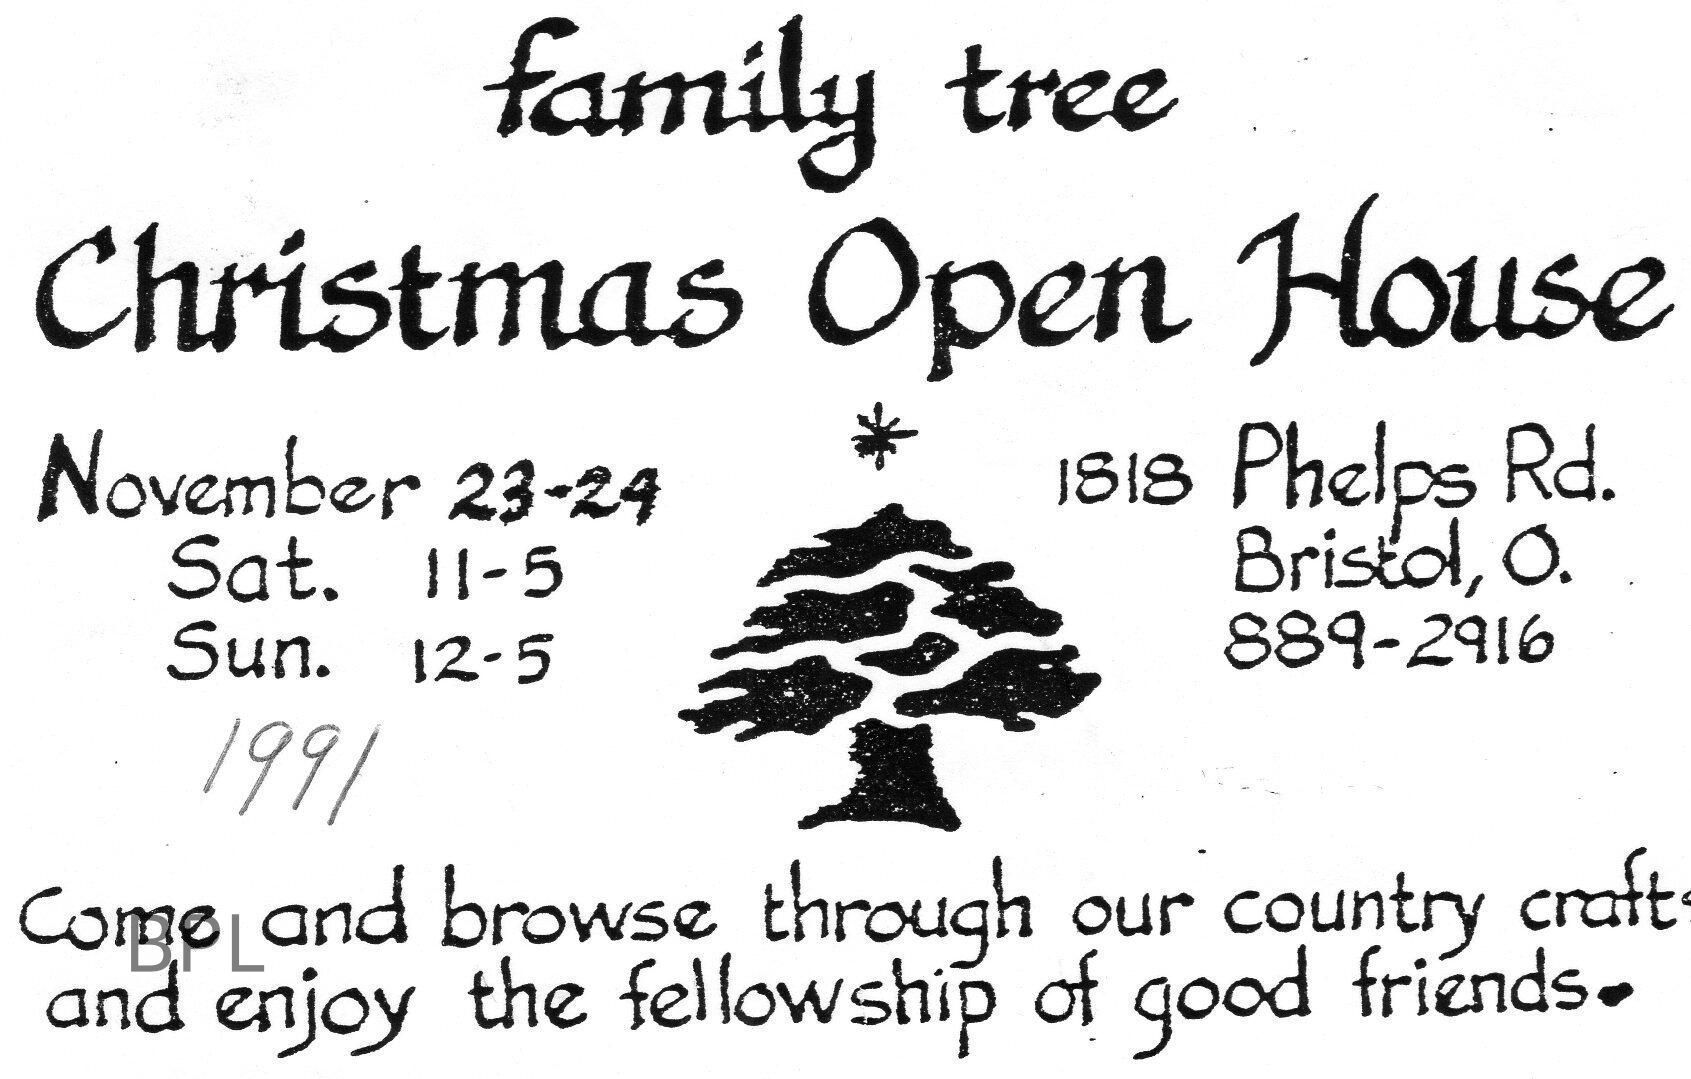 family tree
Christmas Open House
November 23-24
Sat. 11-5
Sun. 12-5
1991
1818 Phelps Rd.
Bristol, O.
889-2916
Come and browse through our country crafts
and enjoy the fellowship of good friends.
BPL